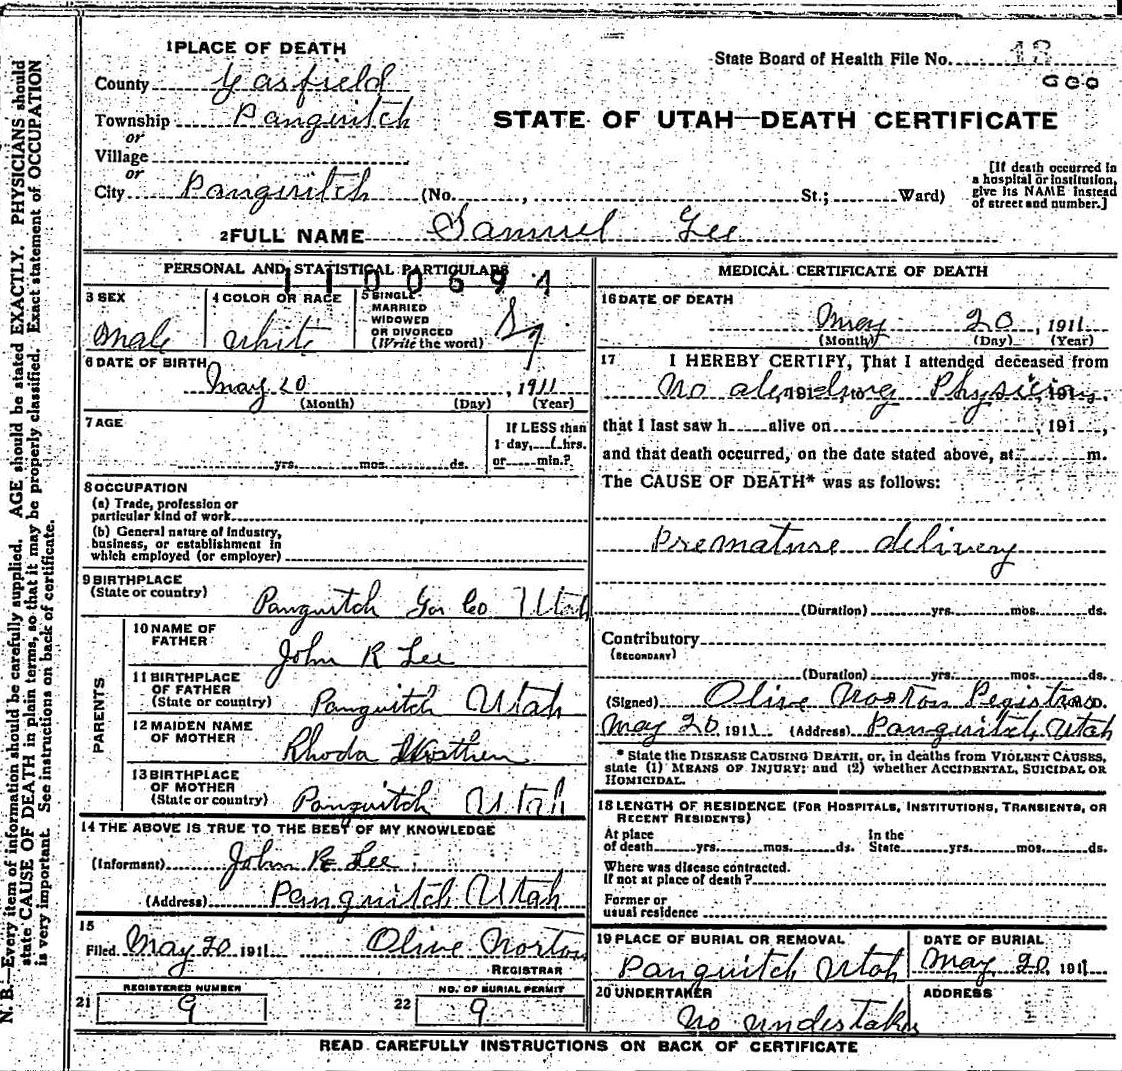 1 PLACE OF DEATH
State Board of Health File No. 13
County Garfield
Township Panguitch
or
Village
or
City Panguitch (No. , St.; Ward)
STATE OF UTAH—DEATH CERTIFICATE
[If death occurred in
a hospital or institution,
give its NAME instead
of street and number.]
2 FULL NAME Samuel Lee
PERSONAL AND STATISTICAL PARTICULARS
3 SEX
Male
4 COLOR OR RACE
White
5 SINGLE
MARRIED
WIDOWED
OR DIVORCED
(Write the word)
6 DATE OF BIRTH
May 20, 1911
(Month) (Day) (Year)
7 AGE
yrs. mos. ds.
If LESS than
1 day, 1 hrs.
or min.?
8 OCCUPATION
(a) Trade, profession or
particular kind of work
(b) General nature of industry,
business, or establishment in
which employed (or employer)
9 BIRTHPLACE
(State or country)
Panguitch Gar Co Utah
PARENTS
10 NAME OF
FATHER
John R Lee
11 BIRTHPLACE
OF FATHER
(State or country)
Panguitch Utah
12 MAIDEN NAME
OF MOTHER
Rhoda
13 BIRTHPLACE
OF MOTHER
(State or country)
Panguitch Utah
14 THE ABOVE IS TRUE TO THE BEST OF MY KNOWLEDGE
(Informant) John R Lee
(Address) Panguitch Utah
15
Filed May 20 1911 Olive Norton
REGISTRAR
21 REGISTERED NUMBER
9
22 NO. OF BURIAL PERMIT
9
MEDICAL CERTIFICATE OF DEATH
16 DATE OF DEATH
May 20, 1911
(Month) (Day) (Year)
17 I HEREBY CERTIFY, That I attended deceased from
No attending Physician
that I last saw h alive on , 191 ,
and that death occurred, on the date stated above, at m.
The CAUSE OF DEATH* was as follows:
Premature delivery
(Duration) yrs. mos. ds.
Contributory
(SECONDARY)
(Duration) yrs. mos. ds.
(Signed) Olive Norton Registrar M. D.
May 20 1911 (Address) Panguitch, Utah
* State the DISEASE CAUSING DEATH, or, in deaths from VIOLENT CAUSES,
state (1) MEANS OF INJURY; and (2) whether ACCIDENTAL, SUICIDAL OR
HOMICIDAL.
18 LENGTH OF RESIDENCE (FOR HOSPITALS, INSTITUTIONS, TRANSIENTS, OR
RECENT RESIDENTS)
At place
of death yrs. mos. ds.
In the
State yrs. mos. ds.
Where was disease contracted.
If not at place of death?
Former or
usual residence
19 PLACE OF BURIAL OR REMOVAL
Panguitch Utah
DATE OF BURIAL
May 20 1911
20 UNDERTAKER
No undertaker
ADDRESS
READ CAREFULLY INSTRUCTIONS ON BACK OF CERTIFICATE
N. B.—Every item of information should be carefully supplied. AGE should be stated EXACTLY. PHYSICIANS should
state CAUSE OF DEATH in plain terms, so that it may be properly classified. Exact statement of OCCUPATION
is very important. See instructions on back of certificate.